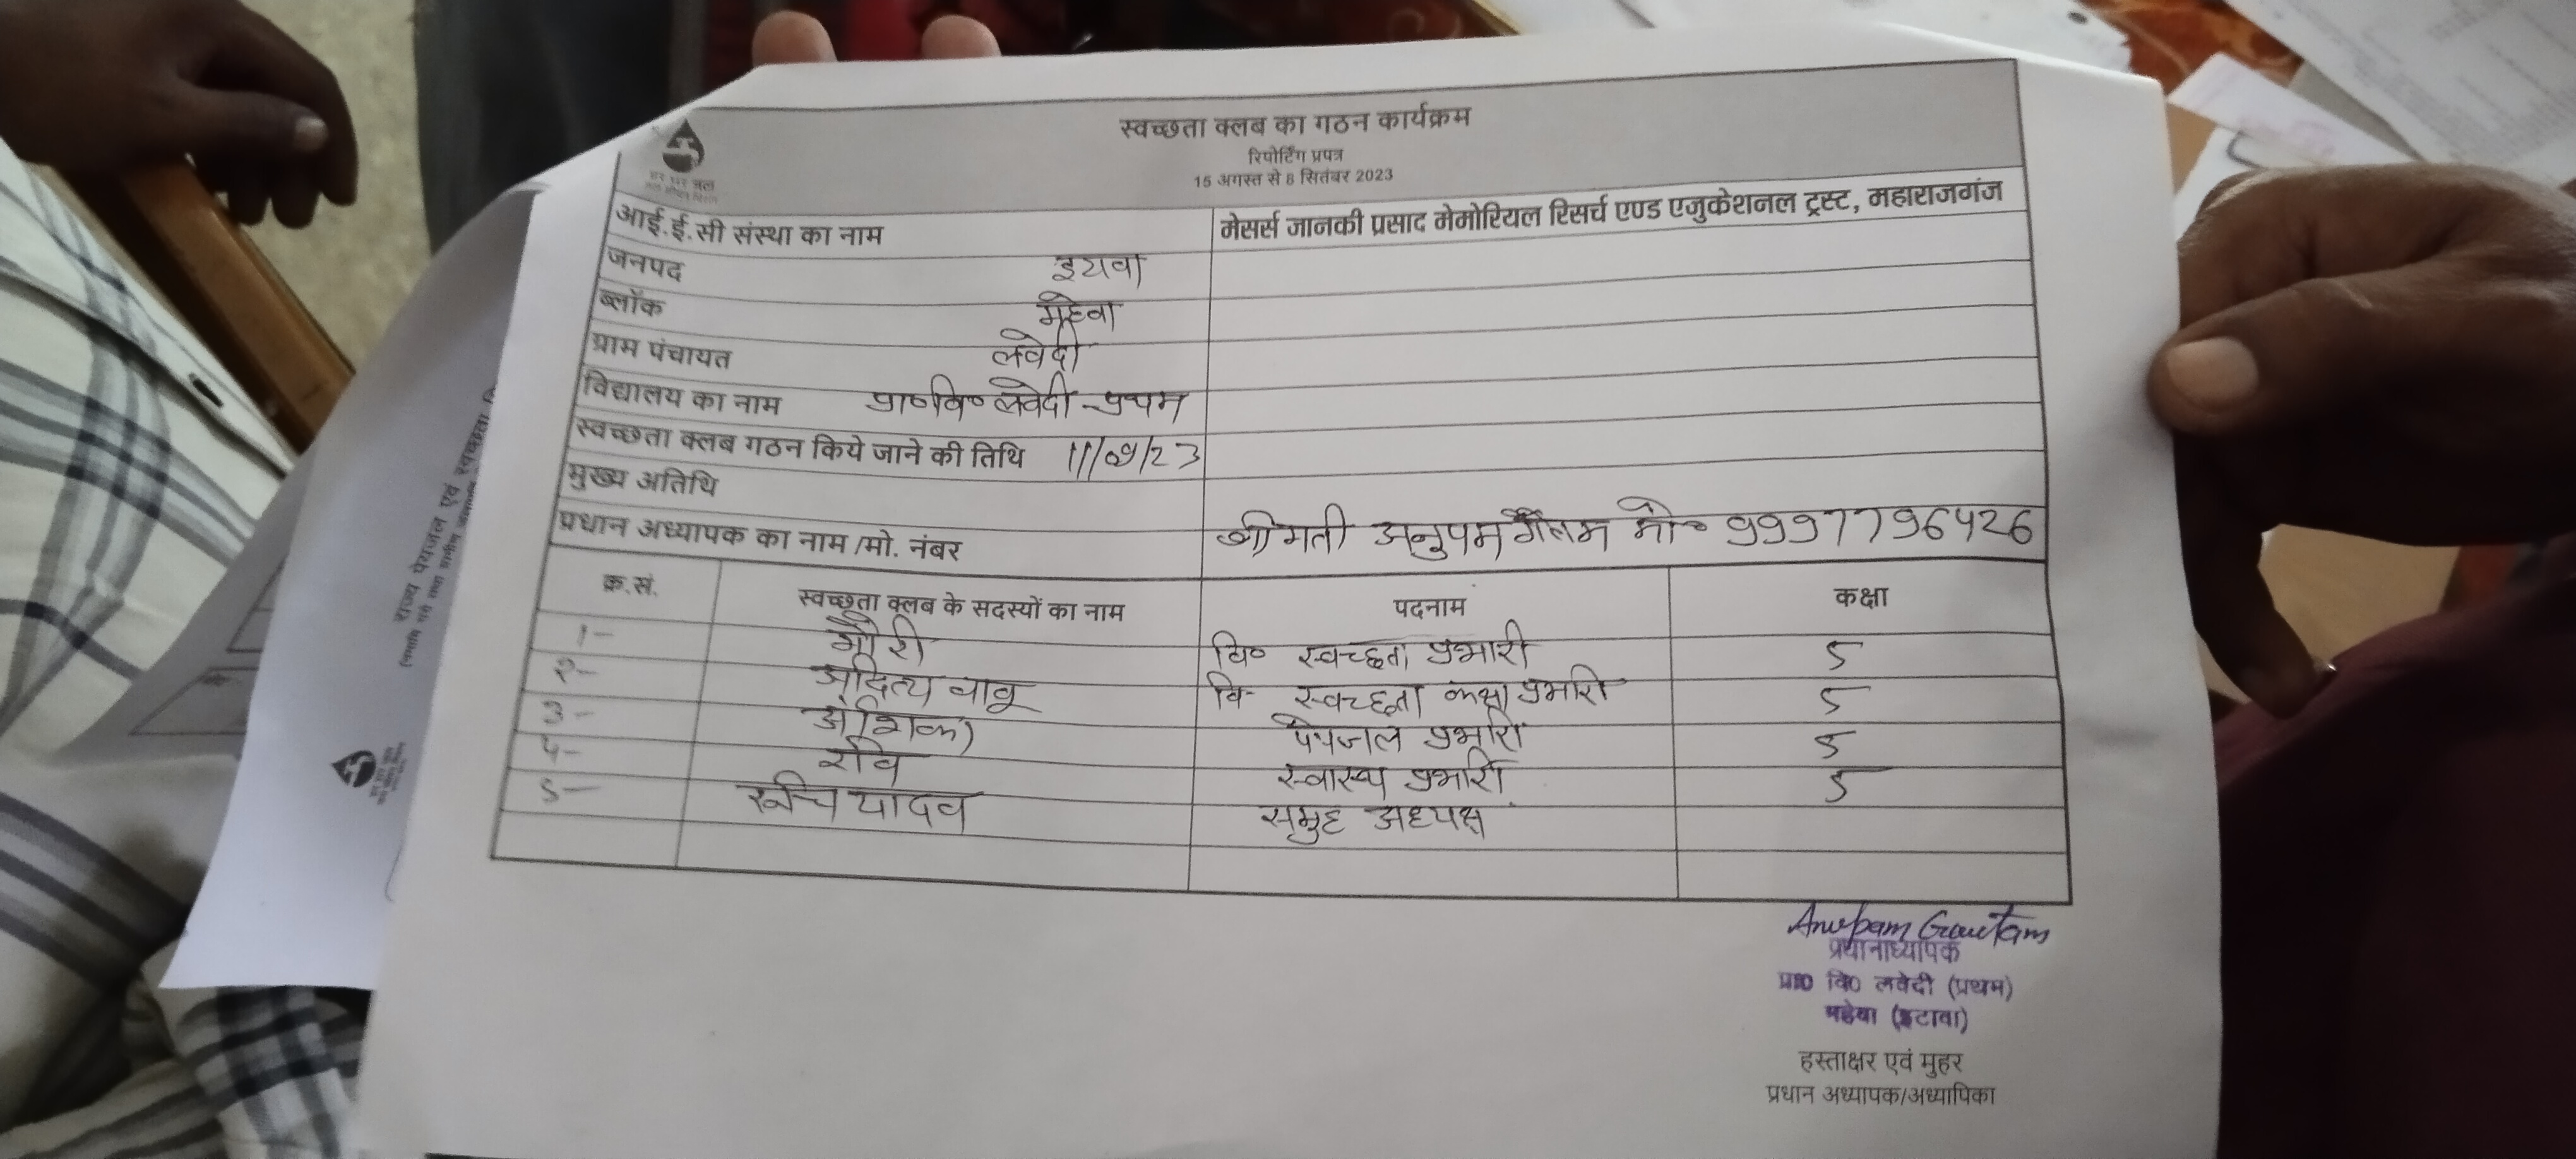 स्वच्छता क्लब का गठन कार्यक्रम
रिपोर्टिंग प्रपत्र
15 अगस्त से 8 सितंबर 2023
हर घर जल
आई.ई.सी संस्था का नाम मेसर्स जानकी प्रसाद मेमोरियल रिसर्च एण्ड एजुकेशनल ट्रस्ट, महाराजगंज
जनपद इटावा
ब्लॉक महेवा
ग्राम पंचायत लवेदी
विद्यालय का नाम प्रा०वि० लवेदी-प्रथम
स्वच्छता क्लब गठन किये जाने की तिथि 11/09/23
मुख्य अतिथि
प्रधान अध्यापक का नाम /मो. नंबर श्रीमती अनुपम गौतम मो० 9997796426
क्र.सं. स्वच्छता क्लब के सदस्यों का नाम पदनाम कक्षा
1- गौरी वि० स्वच्छता प्रभारी 5
2- आदित्य बाबू वि० स्वच्छता कक्षा प्रभारी 5
3- अंशिका पेयजल प्रभारी 5
4- रवि स्वास्थ्य प्रभारी 5
5- यादव समुह अध्यक्ष
Anupam Gautam
प्रधानाध्यापक
प्रा0 वि0 लवेदी (प्रथम)
महेवा (इटावा)
हस्ताक्षर एवं मुहर
प्रधान अध्यापक/अध्यापिका
राज्य पेयजल एवं स्वच्छता